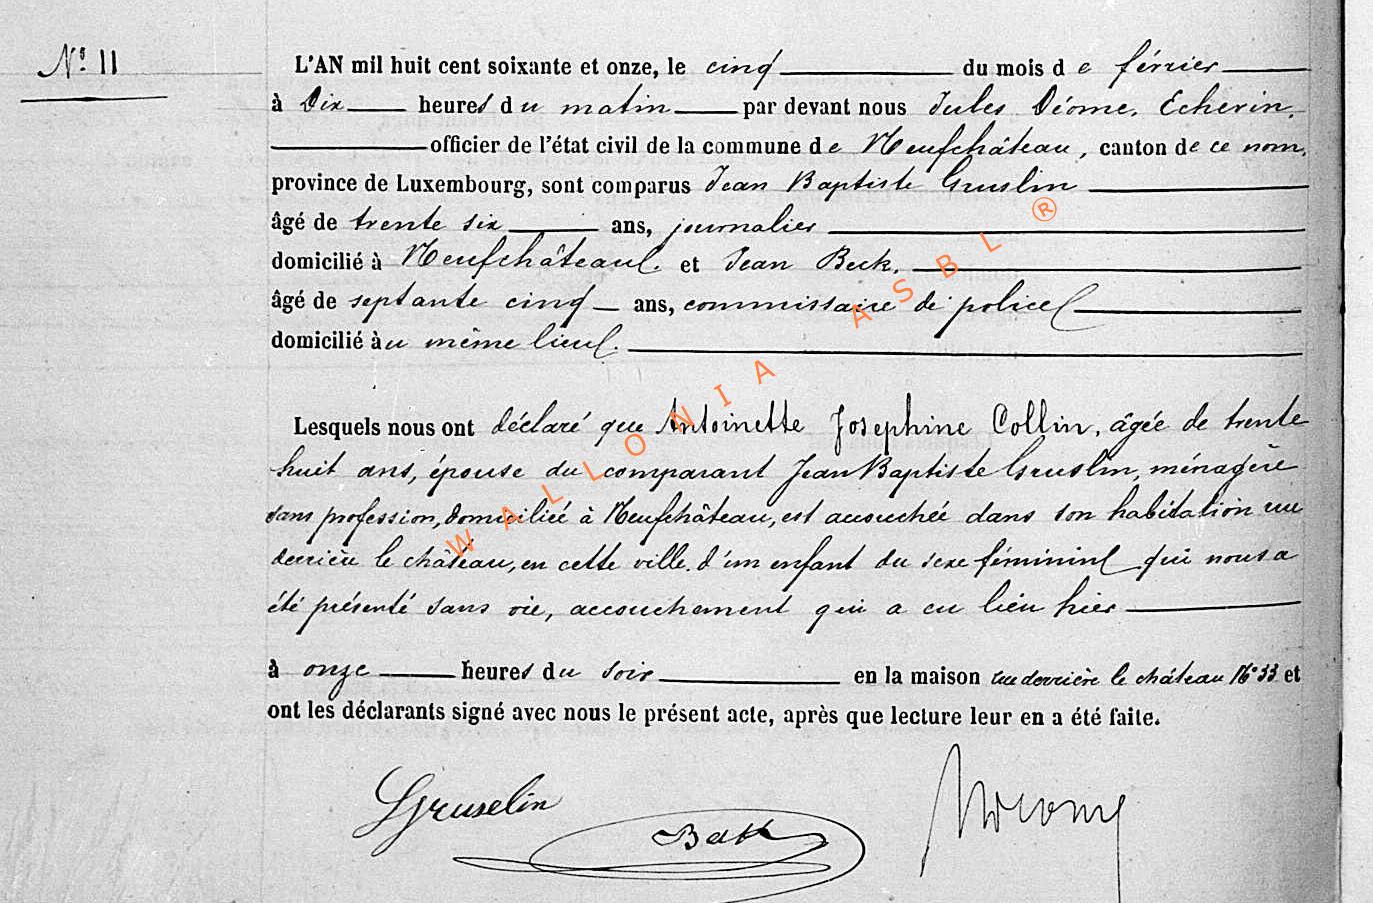 Nº 11
L'AN mil huit cent soixante et onze, le cinq du mois de février
à Dix heures du matin par devant nous Jules Déome, Echevin,
officier de l'état civil de la commune de Neufchâteau, canton de ce nom,
province de Luxembourg, sont comparus Jean Baptiste Gruslin
âgé de trente six ans, journalier
domicilié à Neufchâteau. et Jean Beck.
âgé de septante cinq ans, commissaire de police
domicilié au même lieu.
Lesquels nous ont déclaré que Antoinette Josephine Collin, âgée de trente
huit ans, épouse du comparant Jean Baptiste Gruslin, ménagère
sans profession, domiciliée à Neufchâteau, est accouchée dans son habitation rue
derrière le château, en cette ville. d'un enfant du sexe féminin qui nous a
été présenté sans vie, accouchement qui a eu lieu hier
à onze heures du soir en la maison rue derrière le château Nº 33 et
ont les déclarants signé avec nous le présent acte, après que lecture leur en a été faite.
Gruselin
Beck
WALLONIA ASBL ®